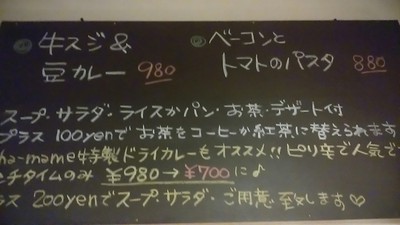 牛スジ&
豆カレー 980
ベーコンと
トマトのパスタ 880
スープ・サラダ・ライスかパン・お茶・デザート付
プラス 100yenで お茶をコーヒーか紅茶に替えられます
ha-mame特製ドライカレーもオススメ!! ピリ辛で人気で
ンチタイムのみ ¥980→¥700に♪
ラス 200yenでスープ・サラダ・ご用意致します♡